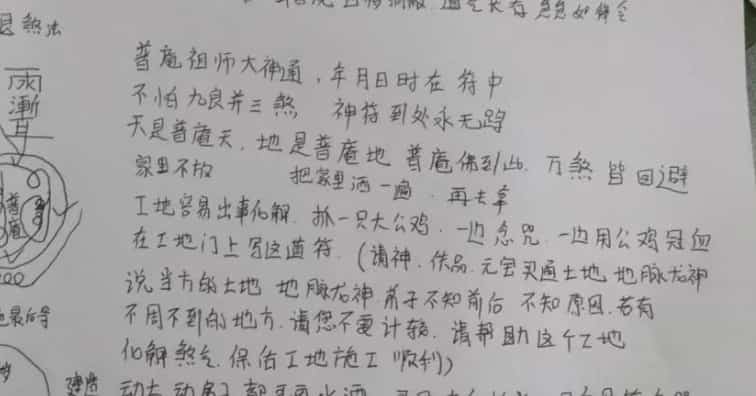 急急如律令
煞法
雨
漸
耳
普庵
普庵祖师大神通,年月日时在符中
不怕九良并三煞 神符到处永无踪
天是普庵天,地是普庵地 普庵佛到此.万煞皆回避
家里不放 把家里洒一遍.再去拿
工地容易出事化解.抓一只大公鸡.一边念咒.一边用公鸡冠血
在工地门上写这道符.(请神.供品.元宝买通土地,地脉龙神
说当方的土地 地脉龙神 弟子不知前后 不知原因.若有
不周不到的地方.请您不要计较.请帮助这个工地
化解煞气.保佑工地施工顺利)